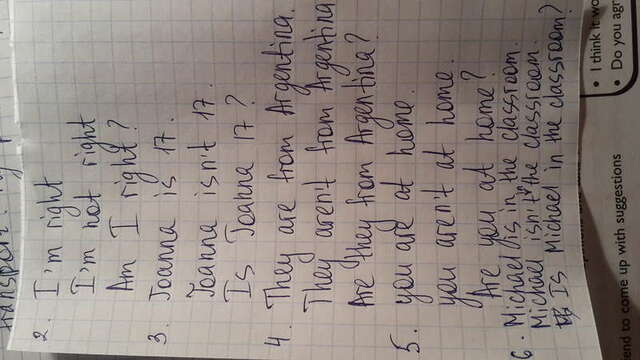 2. I'm right
I'm not right
Am I right?
3. Joanna is 17.
Joanna isn't 17.
Is Joanna 17?
4. They are from Argentina.
They aren't from Argentina
Are they from Argentina?
5. you are at home.
you aren't at home.
Are you at home?
6. Michael is in the classroom.
Michael isn't the classroom.
Is Michael in the classroom?
end to come up with suggestions
• I think it wo
• Do you agr